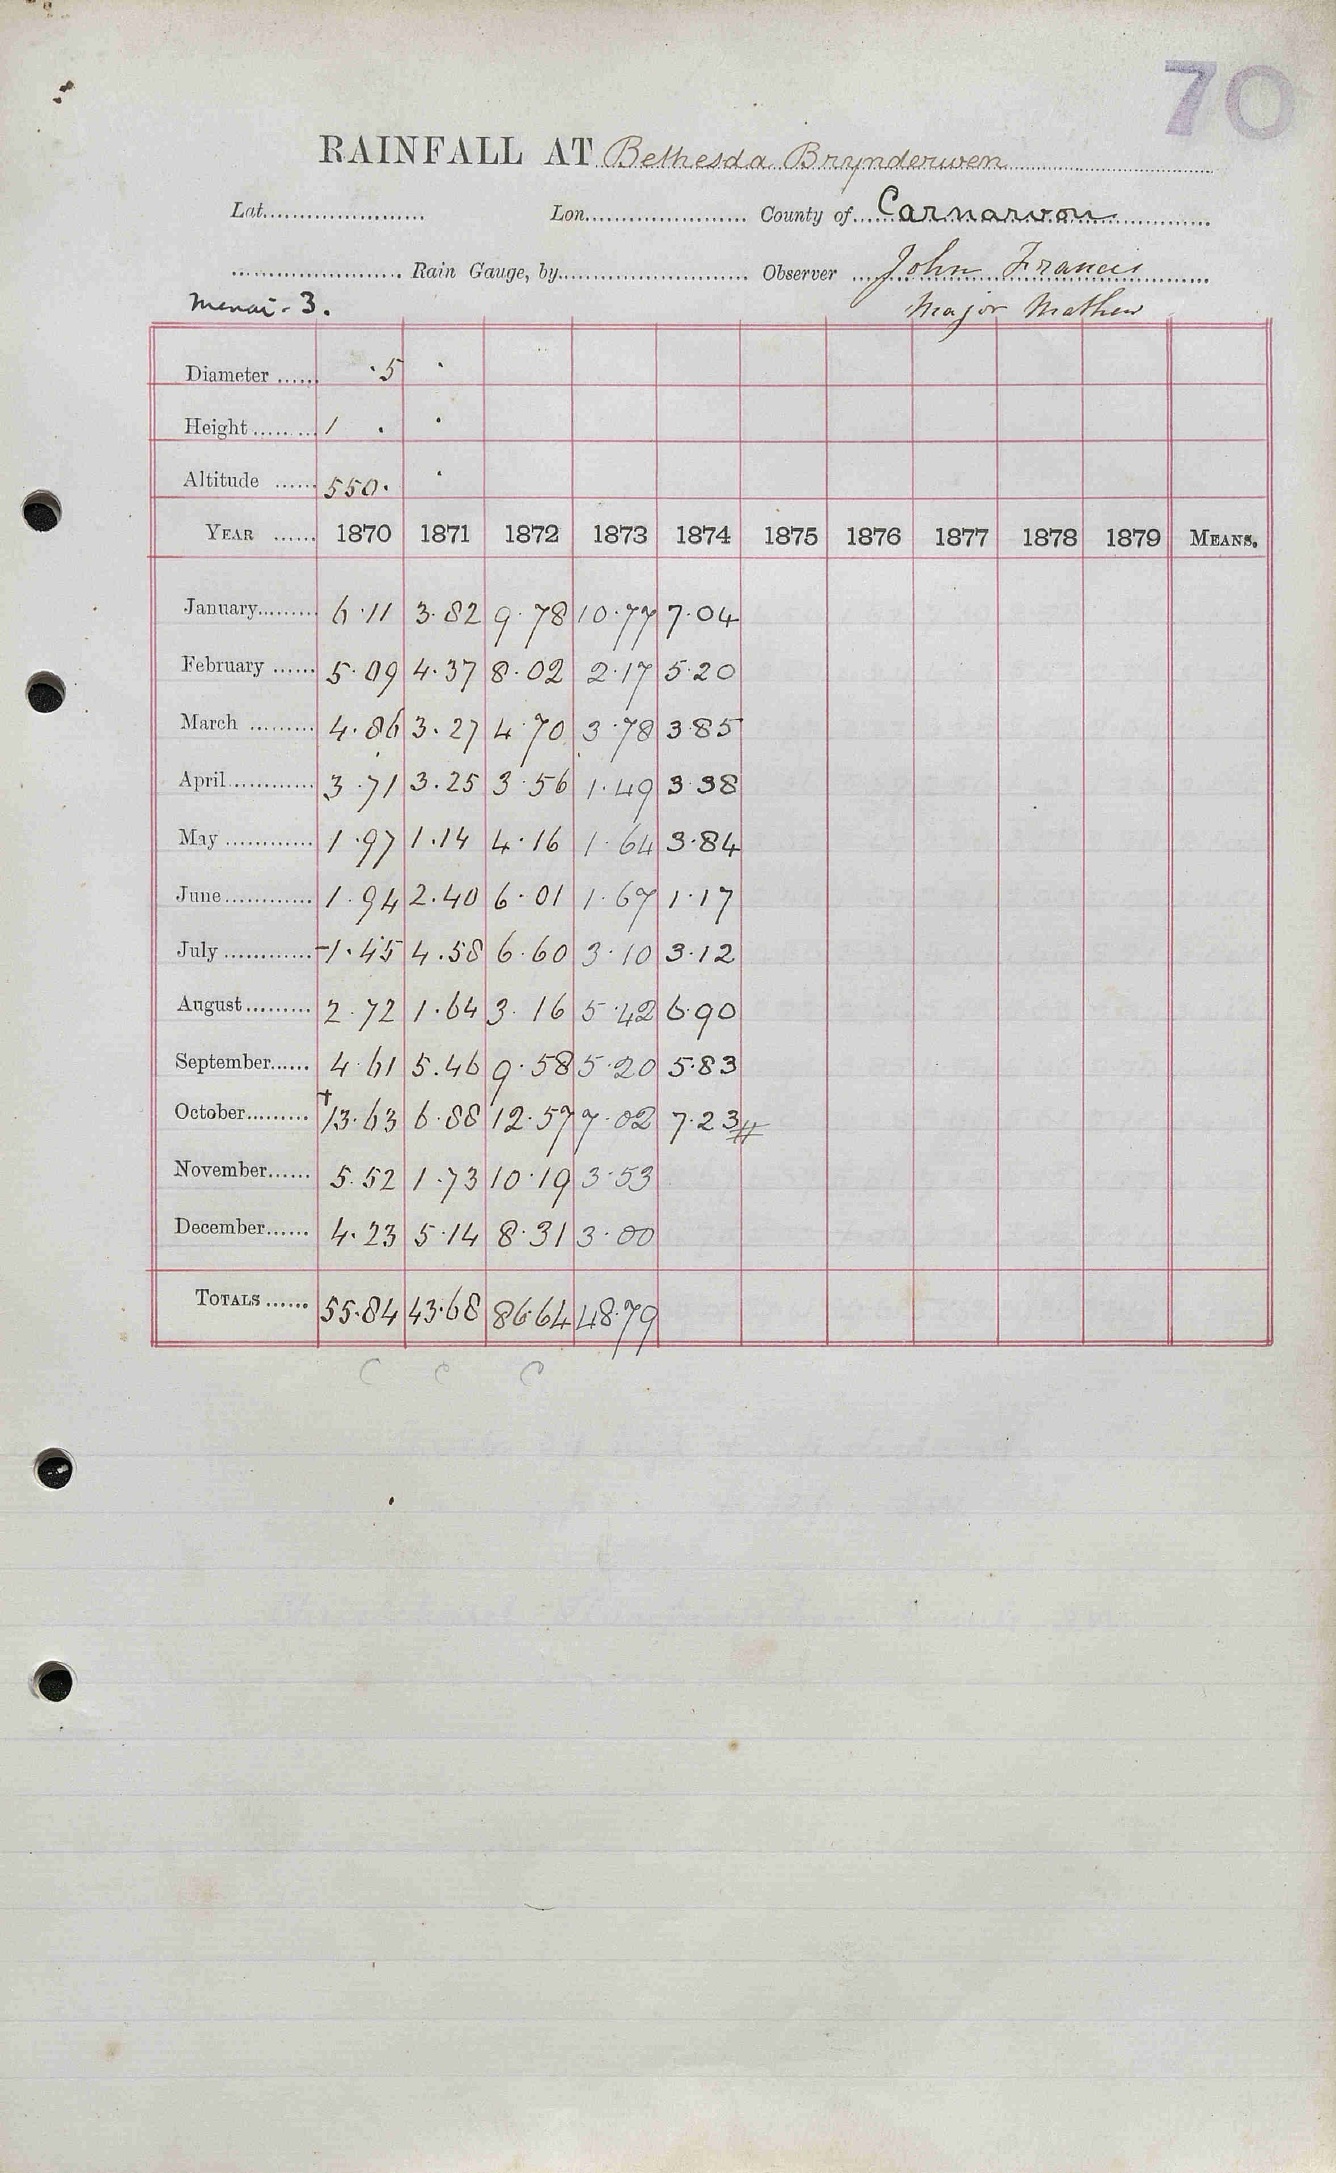 70
RAINFALL AT Bethesda Brynderwen
Lat. Lon. County of Carnarvon
Rain Gauge, by Observer John Francis
Menai - 3. Major Mathew
Diameter ...... ·5
Height ...... 1
Altitude ...... 550·
YEAR ...... 1870 1871 1872 1873 1874 1875 1876 1877 1878 1879 MEANS.
January......... 6·11 3·82 9·78 10·77 7·04
February ...... 5·09 4·37 8·02 2·17 5·20
March ......... 4·86 3·27 4·70 3·78 3·85
April............ 3·71 3·25 3·56 1·49 3·38
May ............ 1·97 1·14 4·16 1·64 3·84
June............ 1·94 2·40 6·01 1·67 1·17
July ............ -1·45 4·58 6·60 3·10 3·12
August......... 2·72 1·64 3·16 5·42 6·90
September...... 4·61 5·46 9·58 5·20 5·83
October......... +13·63 6·88 12·57 7·02 7·23
November...... 5·52 1·73 10·19 3·53
December...... 4·23 5·14 8·31 3·00
TOTALS ...... 55·84 43·68 86·64 48·79
C C C